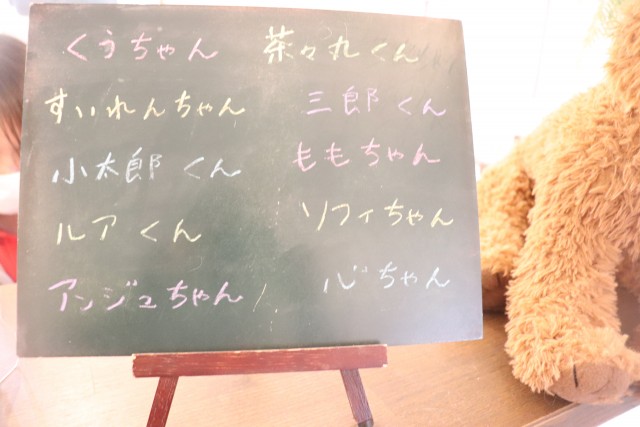 くうちゃん 茶々丸くん
すいれんちゃん 三郎くん
小太郎くん ももちゃん
ルアくん ソフィちゃん
アンジュちゃん 心ちゃん